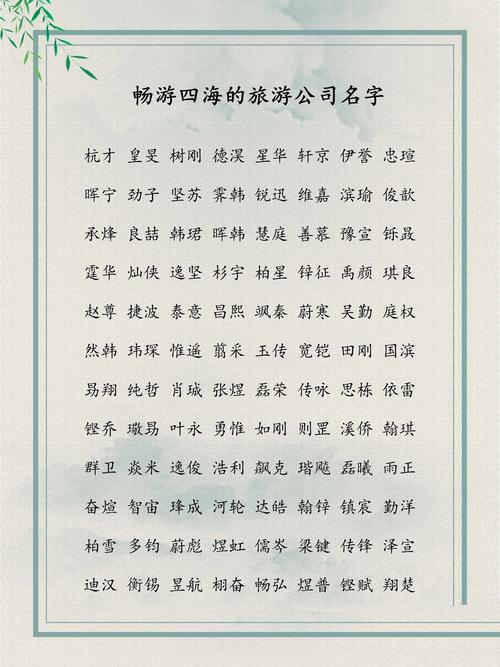 畅游四海的旅游公司名字
杭才 皇旻 树刚 德淏 星华 轩京 伊誉 忠瑄
晖宁 劲子 坚苏 霁韩 锐迅 维嘉 滨瑜 俊歆
承烽 良喆 韩珺 晖韩 慧庭 善慕 豫宣 铄晸
霆华 灿侠 逸坚 杉宇 柏星 锌征 禹颜 琪良
赵尊 捷波 泰意 昌熙 飒秦 蔚寒 吴勤 庭权
然韩 玮琛 惟遥 翦采 玉传 宽铠 田刚 国滨
昜翔 纯哲 肖珹 张煜 磊荣 传咏 思栋 依雷
铿乔 璥昜 叶永 勇惟 如刚 则罡 溪侨 翰琪
群卫 焱米 逸俊 浩利 飙克 瑎飚 磊曦 雨正
奋煊 智宙 琒成 河轮 达皓 翰锌 镇宸 勤洋
柏雪 多钧 蔚彪 煜虹 儒岑 梁键 传锋 泽宣
迪汉 衡锡 昱航 栩奋 畅弘 煜普 铿赋 翔楚